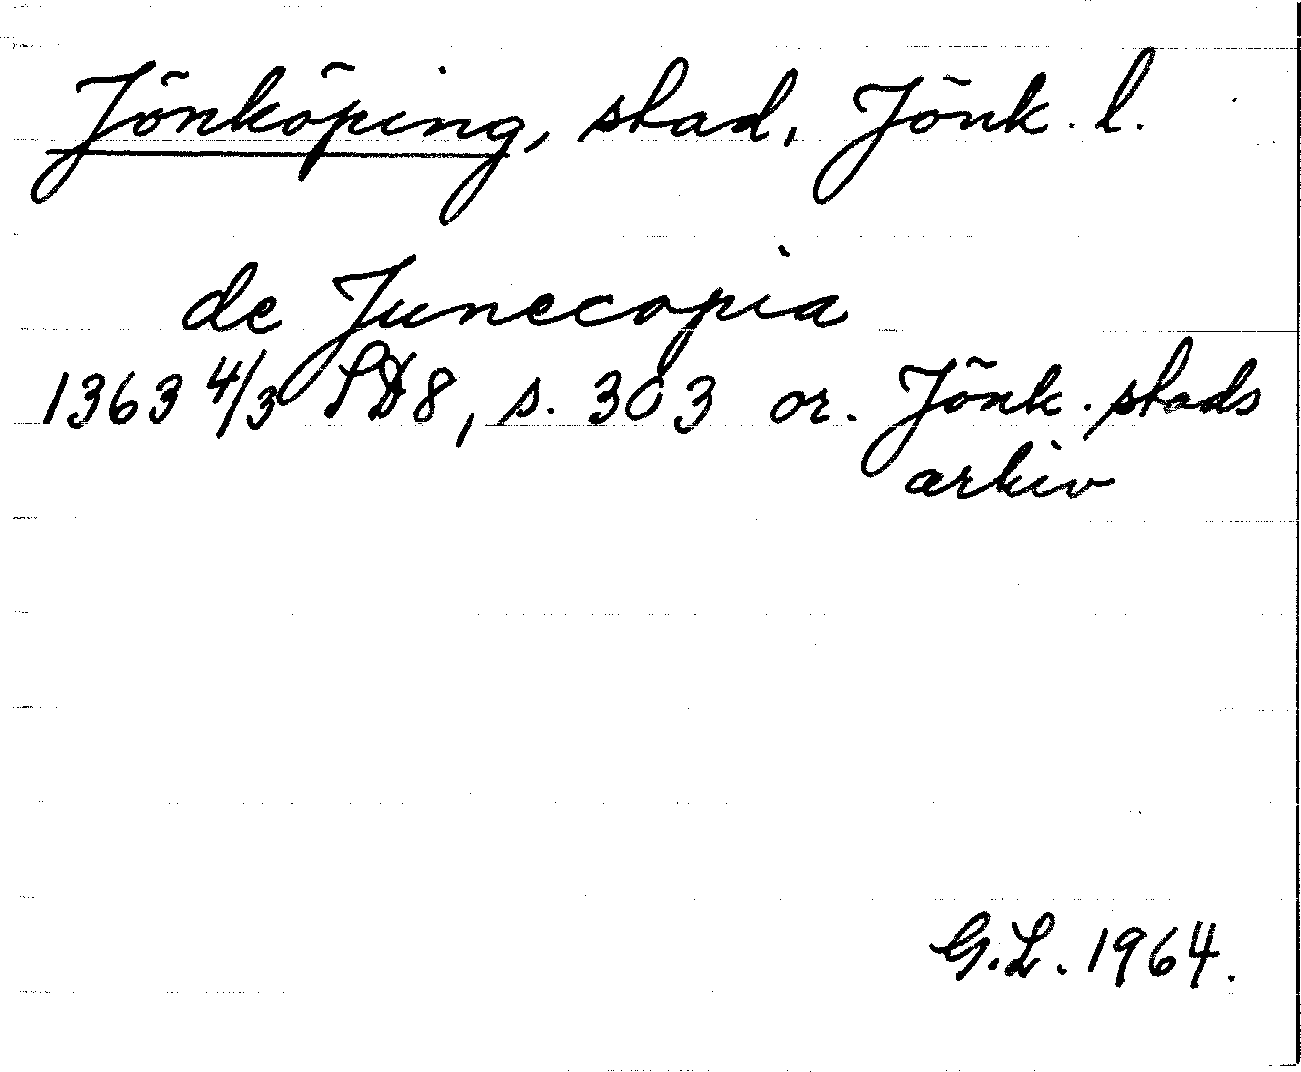 Jönköping, stad, Jönk. l.
de Junecopia
1363 4/3 SD8, s. 303 or. Jönk. stads
arkiv
G.L. 1964.